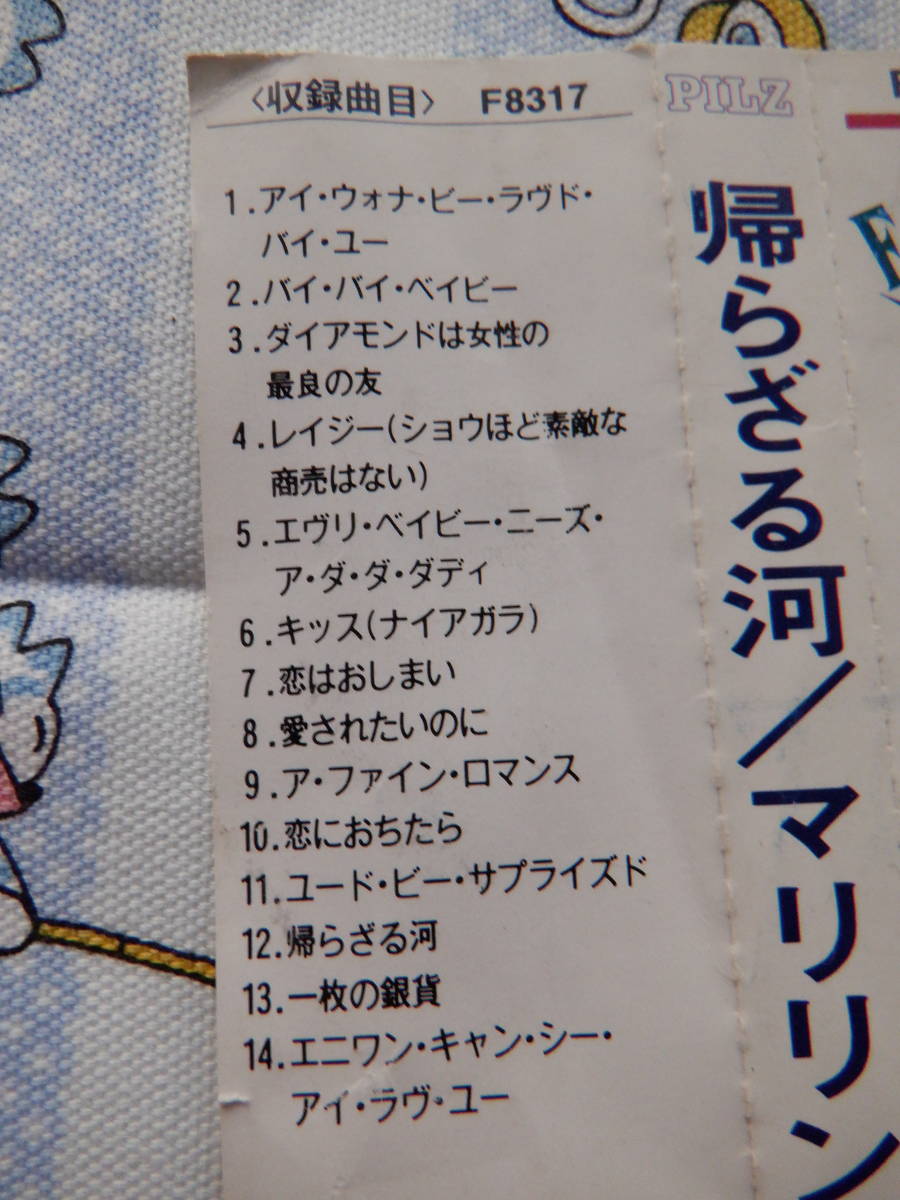 〈収録曲目〉 F8317
1.アイ・ウォナ・ビー・ラヴド・
バイ・ユー
2.バイ・バイ・ベイビー
3.ダイアモンドは女性の
最良の友
4.レイジー(ショウほど素敵な
商売はない)
5.エヴリ・ベイビー・ニーズ・
ア・ダ・ダ・ダディ
6.キッス(ナイアガラ)
7.恋はおしまい
8.愛されたいのに
9.ア・ファイン・ロマンス
10.恋におちたら
11.ユード・ビー・サプライズド
12.帰らざる河
13.一枚の銀貨
14.エニワン・キャン・シー・
アイ・ラヴ・ユー
PILZ
帰らざる河/マリリン